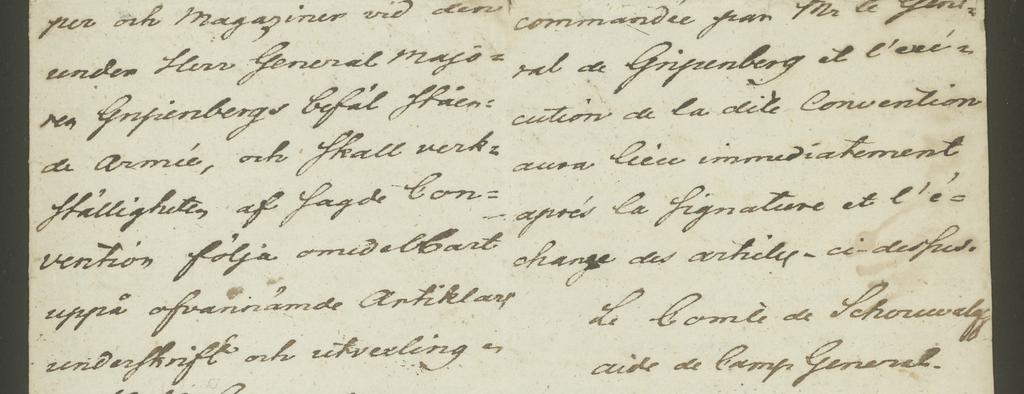 per och Magaziner vid den
under Herr General Majo=
ren Gripenbergs befäl ståen=
de Armée, och skall verk=
ställigheten af sagde Con=
vention följa omedelbart
uppå ofvannämde Artiklars
underskrift och utvexling
commandée par Mr le Géné=
ral de Gripenberg et l'exé=
cution de la dite Convention
aura lieu immediatement
aprés la signature et l'é=
change des articles ci-dessus.
Le Comte de Schouwaloff
aide de Camp General.